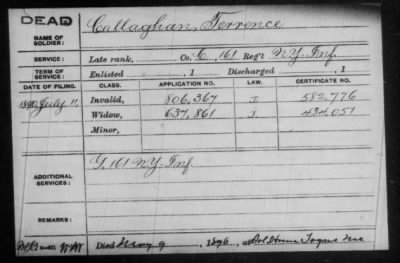 DEAD
NAME OF SOLDIER: Callaghan, Terrence
SERVICE: Late rank, Co. C, 161 Reg't N.Y. Inf.
TERM OF SERVICE: Enlisted , 1 Discharged , 1
DATE OF FILING. CLASS. APPLICATION NO. LAW. CERTIFICATE NO.
1890 July 11. Invalid, 806,367 582,776
Widow, 637,861 434,051
Minor,
ADDITIONAL SERVICES: G, 161 N.Y. Inf
REMARKS:
Died 9, 1896, at Sol Home Togus Me